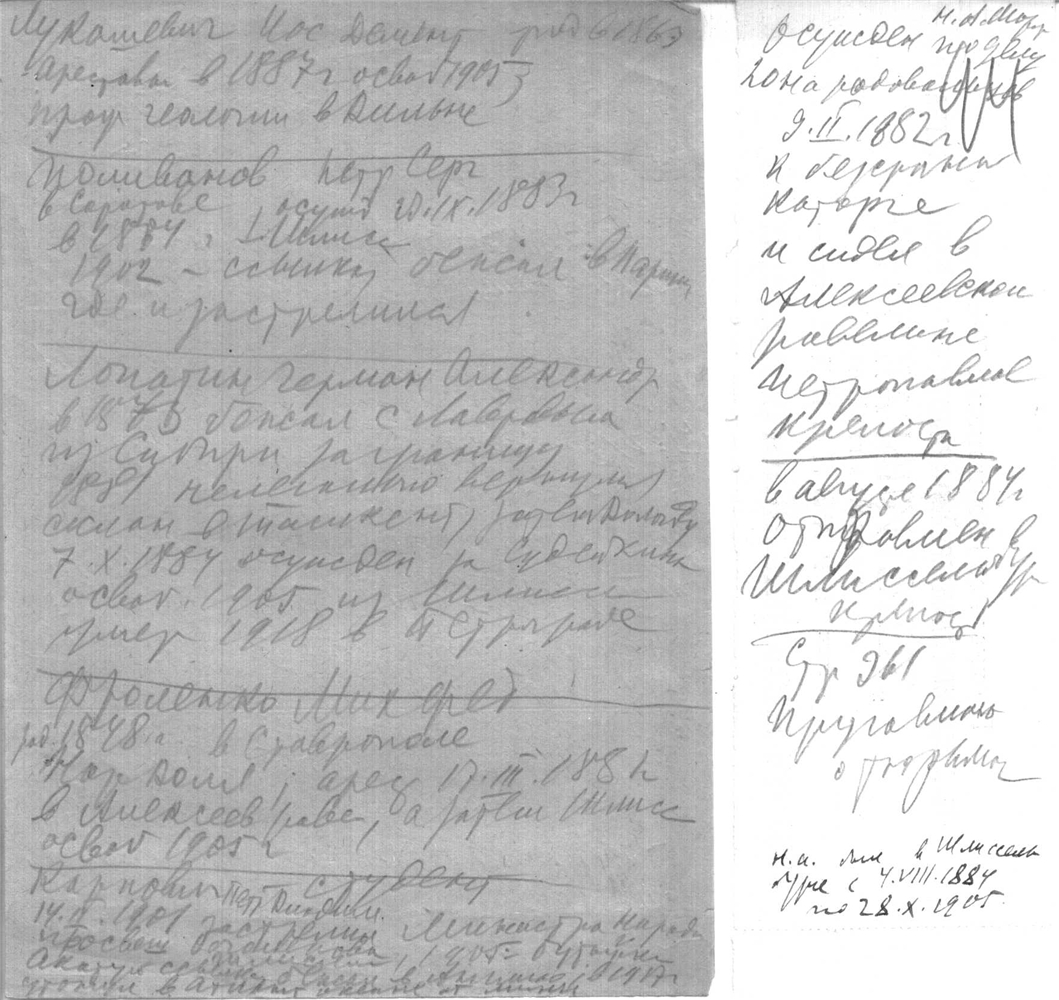 Лукашевич Иос Демент род в 1863
Арестован в 1887 г освоб 1905 г
проф геологии в Вильне
Поливанов Петр Серг
в Саратове осужд 20.IX.1883 г
в 1884 Шлисс
1902 – ссылка бежал в Париж
где и застрелился
Лопатин Герман Александр
в 1873 бежал с Лавровым
из Сибири заграницу
нелегально вернулся
Ташкент, затем Вологду
7.X.1884 осужден за Судейкина
освоб. 1905 из Шлисс
умер 1918 в Петрограде
Фроленко Мих Фед
род. 1848 г. в Ставрополе
Нар Воля, арест 17.III.1881
в Алексеев раве, а затем Шлисс
освоб 1905 г
Карпович Петр Владим. студент
14.II.1901 застрелил Министра Народ
просвещ Боголепова, 1905
Акатуй 1917 г
утонул в
Н.А. Мороз
Осужден по делу
20 народовольцев
9.II.1882 г
к бессрочн
каторге
и сидел в
Алексеевском
равелине
Петропавлов
крепости
в августе 1884 г
отправлен в
Шлиссельбург
крепость
Стр 961
Пругавина
о тюрьмах
Н.А. был в Шлиссель
бурге с 4.VIII.1884
по 28.X.1905